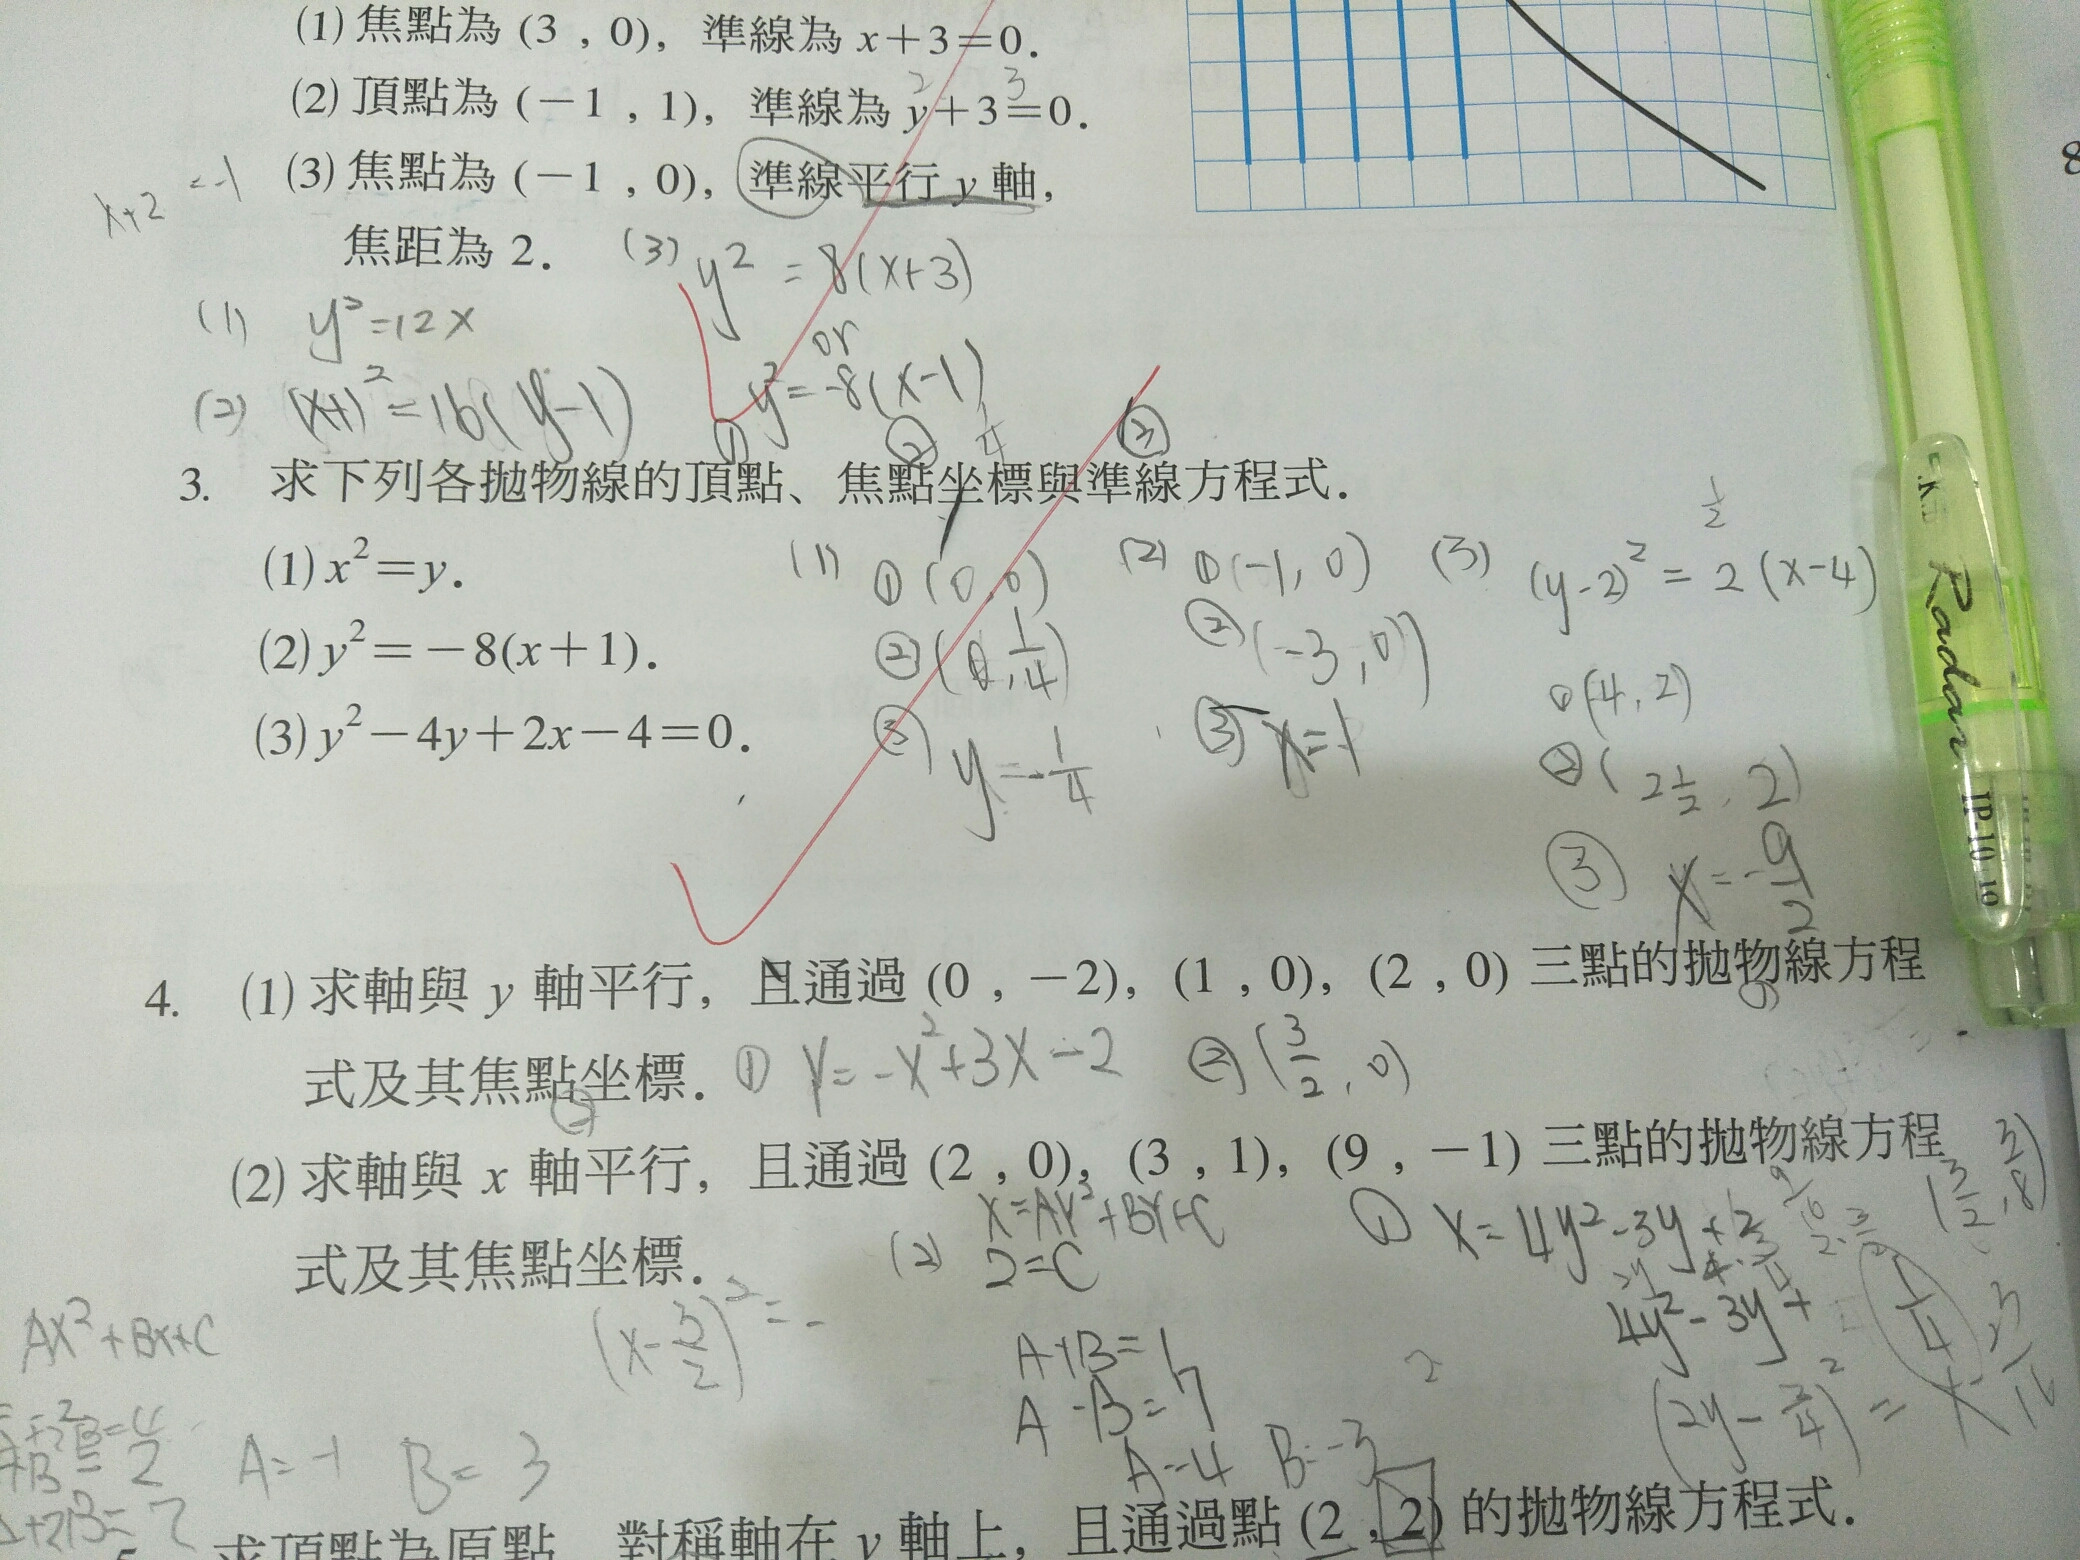 (1) 焦點為 (3 , 0), 準線為 x+3=0.
(2) 頂點為 (-1 , 1), 準線為 y+3=0.
2 3
(3) 焦點為 (-1 , 0), 準線平行 y 軸,
x+2 =-1
焦距為 2.
(3) y² = 8(x+3)
or
y²=-8(x-1)
(1) y²=12x
(2) (x+1)²=16(y-1)
① ② ③
3. 求下列各拋物線的頂點、焦點坐標與準線方程式.
(1) x²=y.
(2) y²=-8(x+1).
(3) y²-4y+2x-4=0.
(1) ① (0,0)
② (0,1/4)
③ y=-1/4
(2) ① (-1,0)
② (-3,0)
③ x=1
(3) (y-2)² = 2(x-4)
1/2
① (4,2)
② (2 1/2, 2)
③ x=-9/2
4. (1) 求軸與 y 軸平行, 且通過 (0 , -2), (1 , 0), (2 , 0) 三點的拋物線方程
式及其焦點坐標.
① y=-x²+3x-2 ② (3/2, 0)
(2) 求軸與 x 軸平行, 且通過 (2 , 0), (3 , 1), (9 , -1) 三點的拋物線方程
式及其焦點坐標.
(2) x=Ay²+By+C
2=C
① x=4y²-3y+2
4y²-3y+
(x-3/2)²=-
A+B=1
A-B=7
A=4 B=-3
(2y-3/4)² =
Ax²+Bx+C
A=-1 B=3
求頂點為原點, 對稱軸在 y 軸上, 且通過點 (2 , 2) 的拋物線方程式.
Radar
8